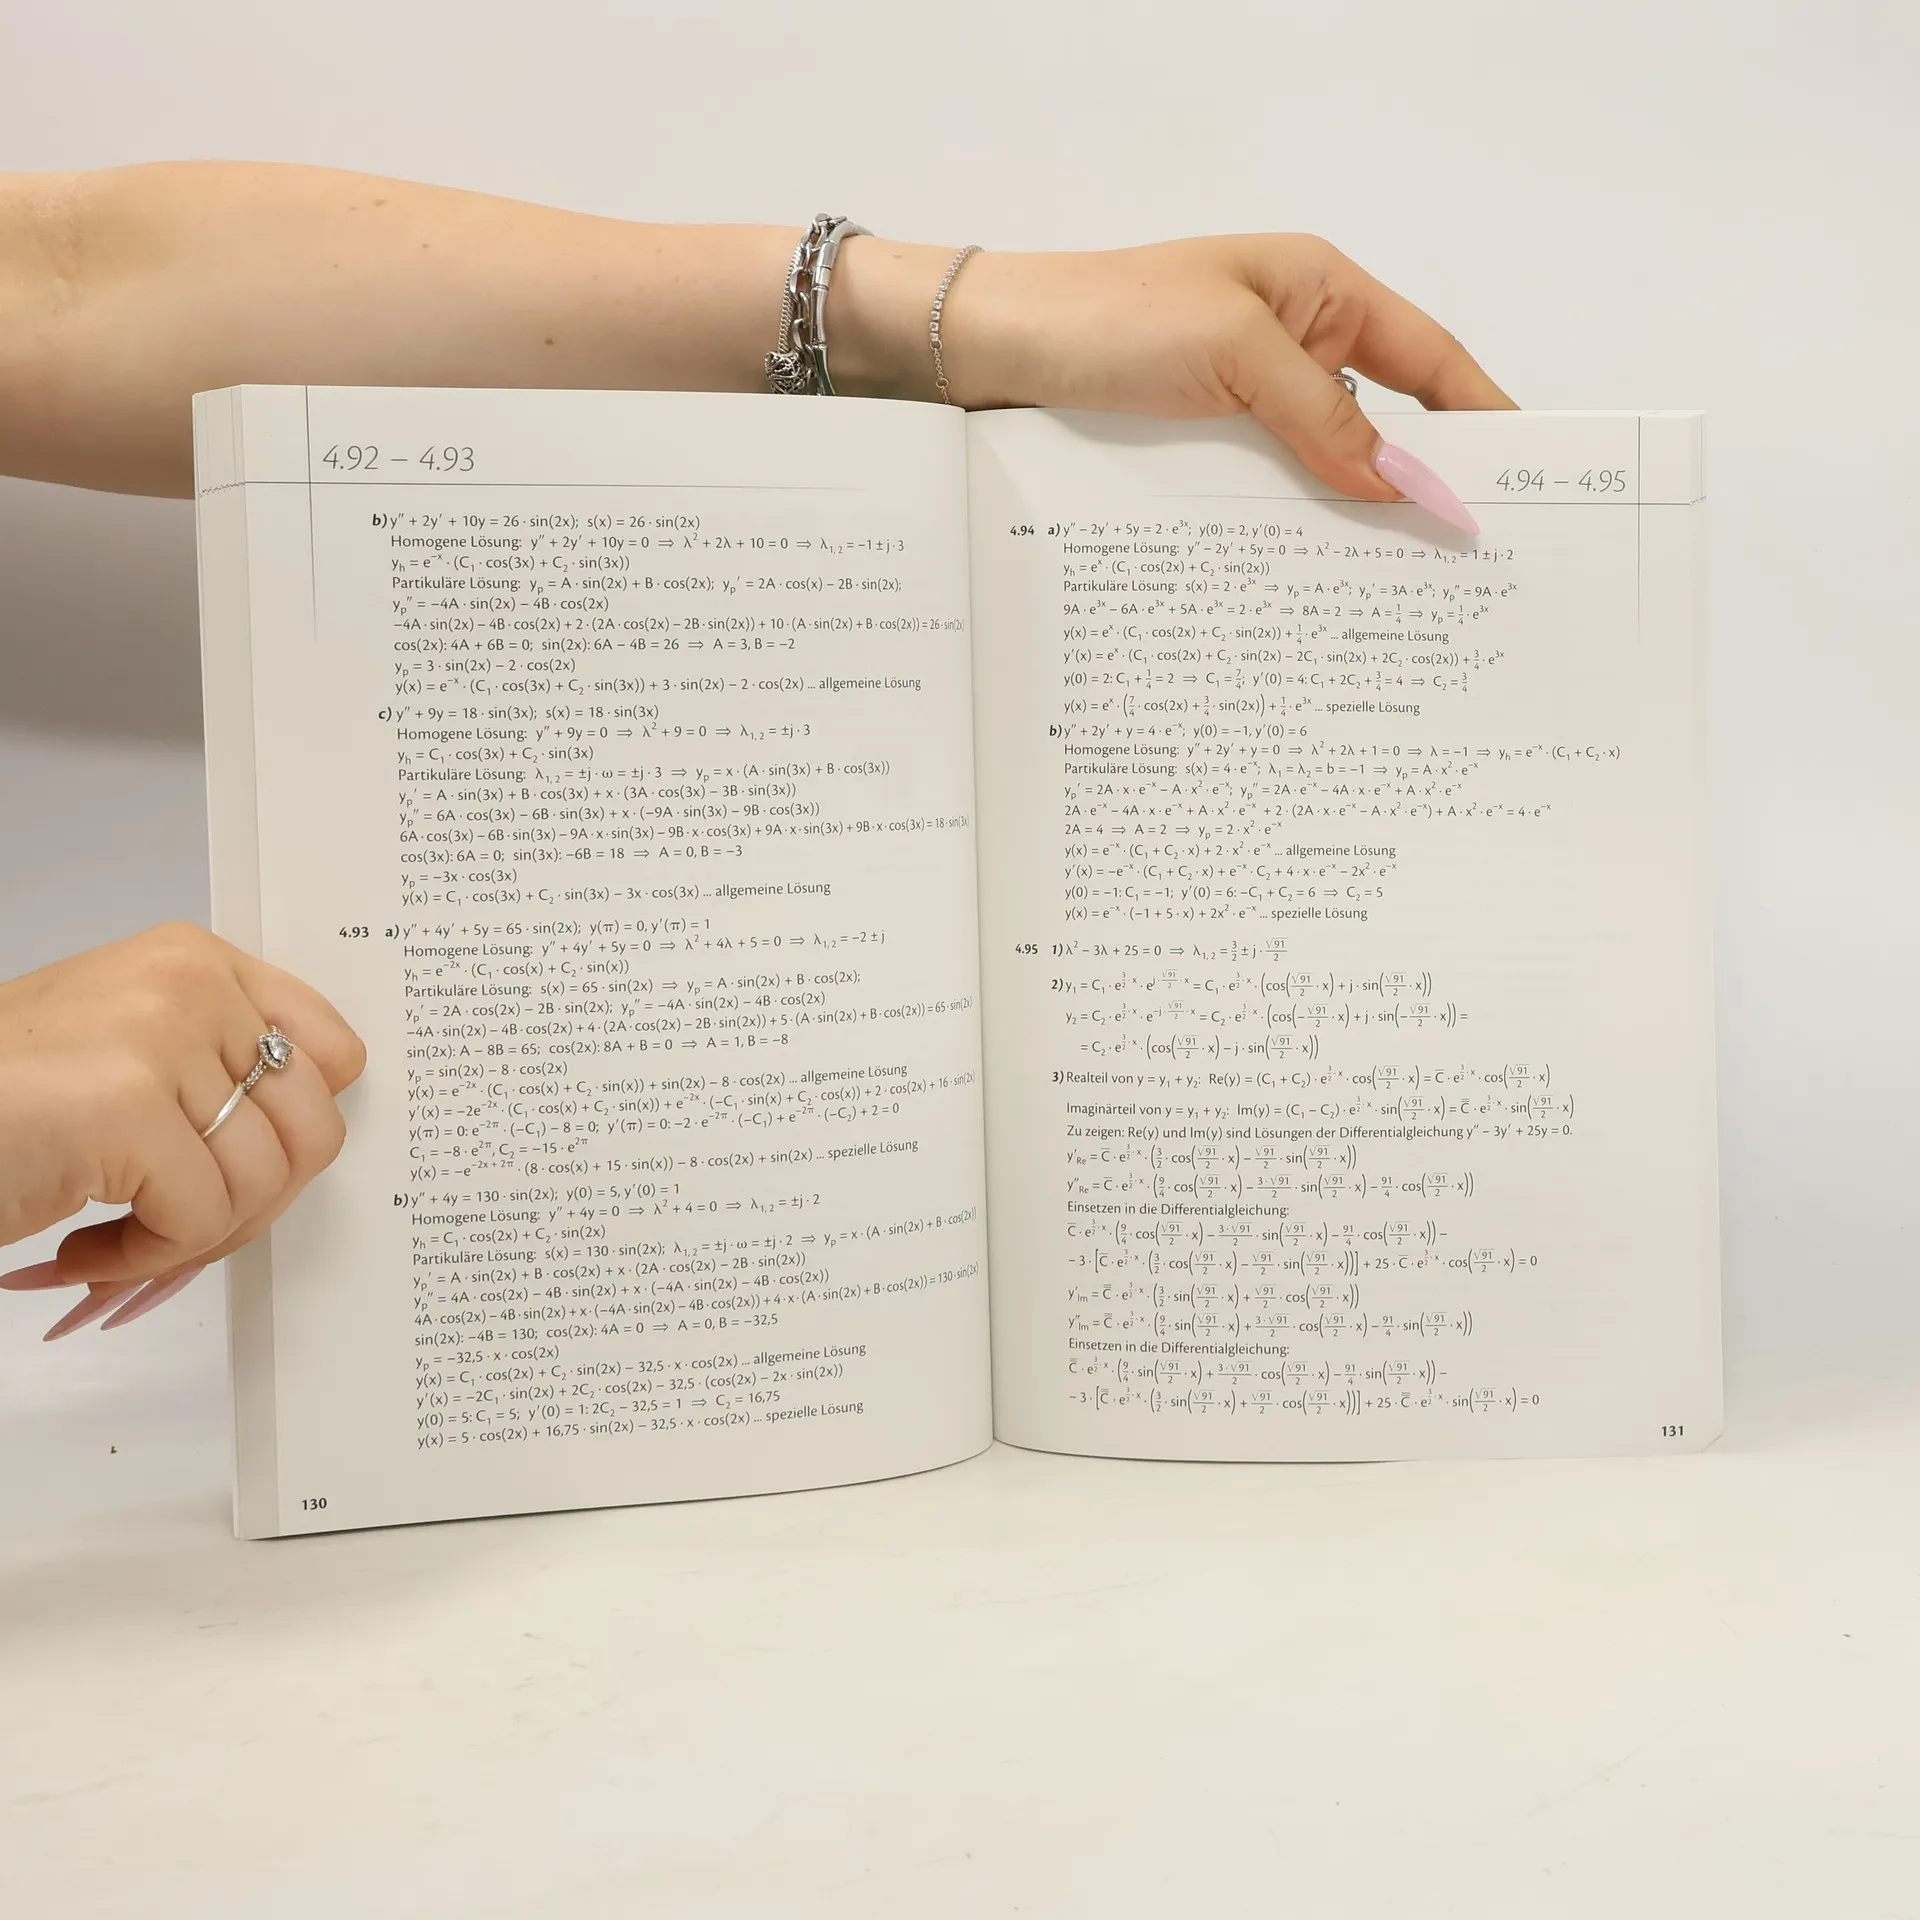 4.92 – 4.93
b) y″ + 2y′ + 10y = 26 · sin(2x); s(x) = 26 · sin(2x)
Homogene Lösung: y″ + 2y′ + 10y = 0 ⇒ λ² + 2λ + 10 = 0 ⇒ λ₁,₂ = −1 ± j · 3
yₕ = e⁻ˣ · (C₁ · cos(3x) + C₂ · sin(3x))
Partikuläre Lösung: yₚ = A · sin(2x) + B · cos(2x); yₚ′ = 2A · cos(x) − 2B · sin(2x);
yₚ″ = −4A · sin(2x) − 4B · cos(2x)
−4A · sin(2x) − 4B · cos(2x) + 2 · (2A · cos(2x) − 2B · sin(2x)) + 10 · (A · sin(2x) + B · cos(2x)) = 26 · sin(2x)
cos(2x): 4A + 6B = 0; sin(2x): 6A − 4B = 26 ⇒ A = 3, B = −2
yₚ = 3 · sin(2x) − 2 · cos(2x)
y(x) = e⁻ˣ · (C₁ · cos(3x) + C₂ · sin(3x)) + 3 · sin(2x) − 2 · cos(2x) ... allgemeine Lösung
c) y″ + 9y = 18 · sin(3x); s(x) = 18 · sin(3x)
Homogene Lösung: y″ + 9y = 0 ⇒ λ² + 9 = 0 ⇒ λ₁,₂ = ±j · 3
yₕ = C₁ · cos(3x) + C₂ · sin(3x)
Partikuläre Lösung: λ₁,₂ = ±j · ω = ±j · 3 ⇒ yₚ = x · (A · sin(3x) + B · cos(3x))
yₚ′ = A · sin(3x) + B · cos(3x) + x · (3A · cos(3x) − 3B · sin(3x))
yₚ″ = 6A · cos(3x) − 6B · sin(3x) + x · (−9A · sin(3x) − 9B · cos(3x))
6A · cos(3x) − 6B · sin(3x) − 9A · x · sin(3x) − 9B · x · cos(3x) + 9A · x · sin(3x) + 9B · x · cos(3x) = 18 · sin(3x)
cos(3x): 6A = 0; sin(3x): −6B = 18 ⇒ A = 0, B = −3
yₚ = −3x · cos(3x)
y(x) = C₁ · cos(3x) + C₂ · sin(3x) − 3x · cos(3x) ... allgemeine Lösung
4.93 a) y″ + 4y′ + 5y = 65 · sin(2x); y(π) = 0, y′(π) = 1
Homogene Lösung: y″ + 4y′ + 5y = 0 ⇒ λ² + 4λ + 5 = 0 ⇒ λ₁,₂ = −2 ± j
yₕ = e⁻²ˣ · (C₁ · cos(x) + C₂ · sin(x))
Partikuläre Lösung: s(x) = 65 · sin(2x) ⇒ yₚ = A · sin(2x) + B · cos(2x);
yₚ′ = 2A · cos(2x) − 2B · sin(2x); yₚ″ = −4A · sin(2x) − 4B · cos(2x)
−4A · sin(2x) − 4B · cos(2x) + 4 · (2A · cos(2x) − 2B · sin(2x)) + 5 · (A · sin(2x) + B · cos(2x)) = 65 · sin(2x)
sin(2x): A − 8B = 65; cos(2x): 8A + B = 0 ⇒ A = 1, B = −8
yₚ = sin(2x) − 8 · cos(2x)
y(x) = e⁻²ˣ · (C₁ · cos(x) + C₂ · sin(x)) + sin(2x) − 8 · cos(2x) ... allgemeine Lösung
y′(x) = −2e⁻²ˣ · (C₁ · cos(x) + C₂ · sin(x)) + e⁻²ˣ · (−C₁ · sin(x) + C₂ · cos(x)) + 2 · cos(2x) + 16 · sin(2x)
y(π) = 0: e^(−2π) · (−C₁) − 8 = 0; y′(π) = 0: −2 · e^(−2π) · (−C₁) + e^(−2π) · (−C₂) + 2 = 0
C₁ = −8 · e^(2π), C₂ = −15 · e^(2π)
y(x) = −e^(−2x + 2π) · (8 · cos(x) + 15 · sin(x)) − 8 · cos(2x) + sin(2x) ... spezielle Lösung
b) y″ + 4y = 130 · sin(2x); y(0) = 5, y′(0) = 1
Homogene Lösung: y″ + 4y = 0 ⇒ λ² + 4 = 0 ⇒ λ₁,₂ = ±j · 2
yₕ = C₁ · cos(2x) + C₂ · sin(2x)
Partikuläre Lösung: s(x) = 130 · sin(2x); λ₁,₂ = ±j · ω = ±j · 2 ⇒ yₚ = x · (A · sin(2x) + B · cos(2x))
yₚ′ = A · sin(2x) + B · cos(2x) + x · (2A · cos(2x) − 2B · sin(2x))
yₚ″ = 4A · cos(2x) − 4B · sin(2x) + x · (−4A · sin(2x) − 4B · cos(2x))
4A · cos(2x) − 4B · sin(2x) + x · (−4A · sin(2x) − 4B · cos(2x)) + 4 · x · (A · sin(2x) + B · cos(2x)) = 130 · sin(2x)
sin(2x): −4B = 130; cos(2x): 4A = 0 ⇒ A = 0, B = −32,5
yₚ = −32,5 · x · cos(2x)
y(x) = C₁ · cos(2x) + C₂ · sin(2x) − 32,5 · x · cos(2x) ... allgemeine Lösung
y′(x) = −2C₁ · sin(2x) + 2C₂ · cos(2x) − 32,5 · (cos(2x) − 2x · sin(2x))
y(0) = 5: C₁ = 5; y′(0) = 1: 2C₂ − 32,5 = 1 ⇒ C₂ = 16,75
y(x) = 5 · cos(2x) + 16,75 · sin(2x) − 32,5 · x · cos(2x) ... spezielle Lösung
130
4.94 – 4.95
4.94 a) y″ − 2y′ + 5y = 2 · e³ˣ; y(0) = 2, y′(0) = 4
Homogene Lösung: y″ − 2y′ + 5y = 0 ⇒ λ² − 2λ + 5 = 0 ⇒ λ₁,₂ = 1 ± j · 2
yₕ = eˣ · (C₁ · cos(2x) + C₂ · sin(2x))
Partikuläre Lösung: s(x) = 2 · e³ˣ ⇒ yₚ = A · e³ˣ; yₚ′ = 3A · e³ˣ; yₚ″ = 9A · e³ˣ
9A · e³ˣ − 6A · e³ˣ + 5A · e³ˣ = 2 · e³ˣ ⇒ 8A = 2 ⇒ A = 1/4 ⇒ yₚ = 1/4 · e³ˣ
y(x) = eˣ · (C₁ · cos(2x) + C₂ · sin(2x)) + 1/4 · e³ˣ ... allgemeine Lösung
y′(x) = eˣ · (C₁ · cos(2x) + C₂ · sin(2x) − 2C₁ · sin(2x) + 2C₂ · cos(2x)) + 3/4 · e³ˣ
y(0) = 2: C₁ + 1/4 = 2 ⇒ C₁ = 7/4; y′(0) = 4: C₁ + 2C₂ + 3/4 = 4 ⇒ C₂ = 3/4
y(x) = eˣ · (7/4 · cos(2x) + 3/4 · sin(2x)) + 1/4 · e³ˣ ... spezielle Lösung
b) y″ + 2y′ + y = 4 · e⁻ˣ; y(0) = −1, y′(0) = 6
Homogene Lösung: y″ + 2y′ + y = 0 ⇒ λ² + 2λ + 1 = 0 ⇒ λ = −1 ⇒ yₕ = e⁻ˣ · (C₁ + C₂ · x)
Partikuläre Lösung: s(x) = 4 · e⁻ˣ; λ₁ = λ₂ = b = −1 ⇒ yₚ = A · x² · e⁻ˣ
yₚ′ = 2A · x · e⁻ˣ − A · x² · e⁻ˣ; yₚ″ = 2A · e⁻ˣ − 4A · x · e⁻ˣ + A · x² · e⁻ˣ
2A · e⁻ˣ − 4A · x · e⁻ˣ + A · x² · e⁻ˣ + 2 · (2A · x · e⁻ˣ − A · x² · e⁻ˣ) + A · x² · e⁻ˣ = 4 · e⁻ˣ
2A = 4 ⇒ A = 2 ⇒ yₚ = 2 · x² · e⁻ˣ
y(x) = e⁻ˣ · (C₁ + C₂ · x) + 2 · x² · e⁻ˣ ... allgemeine Lösung
y′(x) = −e⁻ˣ · (C₁ + C₂ · x) + e⁻ˣ · C₂ + 4 · x · e⁻ˣ − 2x² · e⁻ˣ
y(0) = −1: C₁ = −1; y′(0) = 6: −C₁ + C₂ = 6 ⇒ C₂ = 5
y(x) = e⁻ˣ · (−1 + 5 · x) + 2x² · e⁻ˣ ... spezielle Lösung
4.95 1) λ² − 3λ + 25 = 0 ⇒ λ₁,₂ = 3/2 ± j · √91/2
2) y₁ = C₁ · e^(3/2 · x) · e^(j · √91/2 · x) = C₁ · e^(3/2 · x) · (cos(√91/2 · x) + j · sin(√91/2 · x))
y₂ = C₂ · e^(3/2 · x) · e^(−j · √91/2 · x) = C₂ · e^(3/2 · x) · (cos(−√91/2 · x) + j · sin(−√91/2 · x)) =
= C₂ · e^(3/2 · x) · (cos(√91/2 · x) − j · sin(√91/2 · x))
3) Realteil von y = y₁ + y₂: Re(y) = (C₁ + C₂) · e^(3/2 · x) · cos(√91/2 · x) = C̅ · e^(3/2 · x) · cos(√91/2 · x)
Imaginärteil von y = y₁ + y₂: Im(y) = (C₁ − C₂) · e^(3/2 · x) · sin(√91/2 · x) = C̿ · e^(3/2 · x) · sin(√91/2 · x)
Zu zeigen: Re(y) und Im(y) sind Lösungen der Differentialgleichung y″ − 3y′ + 25y = 0.
y′Re = C̅ · e^(3/2 · x) · (3/2 · cos(√91/2 · x) − √91/2 · sin(√91/2 · x))
y″Re = C̅ · e^(3/2 · x) · (9/4 · cos(√91/2 · x) − 3·√91/2 · sin(√91/2 · x) − 91/4 · cos(√91/2 · x))
Einsetzen in die Differentialgleichung:
C̅ · e^(3/2 · x) · (9/4 · cos(√91/2 · x) − 3·√91/2 · sin(√91/2 · x) − 91/4 · cos(√91/2 · x)) −
− 3 · [C̅ · e^(3/2 · x) · (3/2 · cos(√91/2 · x) − √91/2 · sin(√91/2 · x))] + 25 · C̅ · e^(3/2 · x) · cos(√91/2 · x) = 0
y′Im = C̿ · e^(3/2 · x) · (3/2 · sin(√91/2 · x) + √91/2 · cos(√91/2 · x))
y″Im = C̿ · e^(3/2 · x) · (9/4 · sin(√91/2 · x) + 3·√91/2 · cos(√91/2 · x) − 91/4 · sin(√91/2 · x))
Einsetzen in die Differentialgleichung:
C̿ · e^(3/2 · x) · (9/4 · sin(√91/2 · x) + 3·√91/2 · cos(√91/2 · x) − 91/4 · sin(√91/2 · x)) −
− 3 · [C̿ · e^(3/2 · x) · (3/2 · sin(√91/2 · x) + √91/2 · cos(√91/2 · x))] + 25 · C̿ · e^(3/2 · x) · sin(√91/2 · x) = 0
131